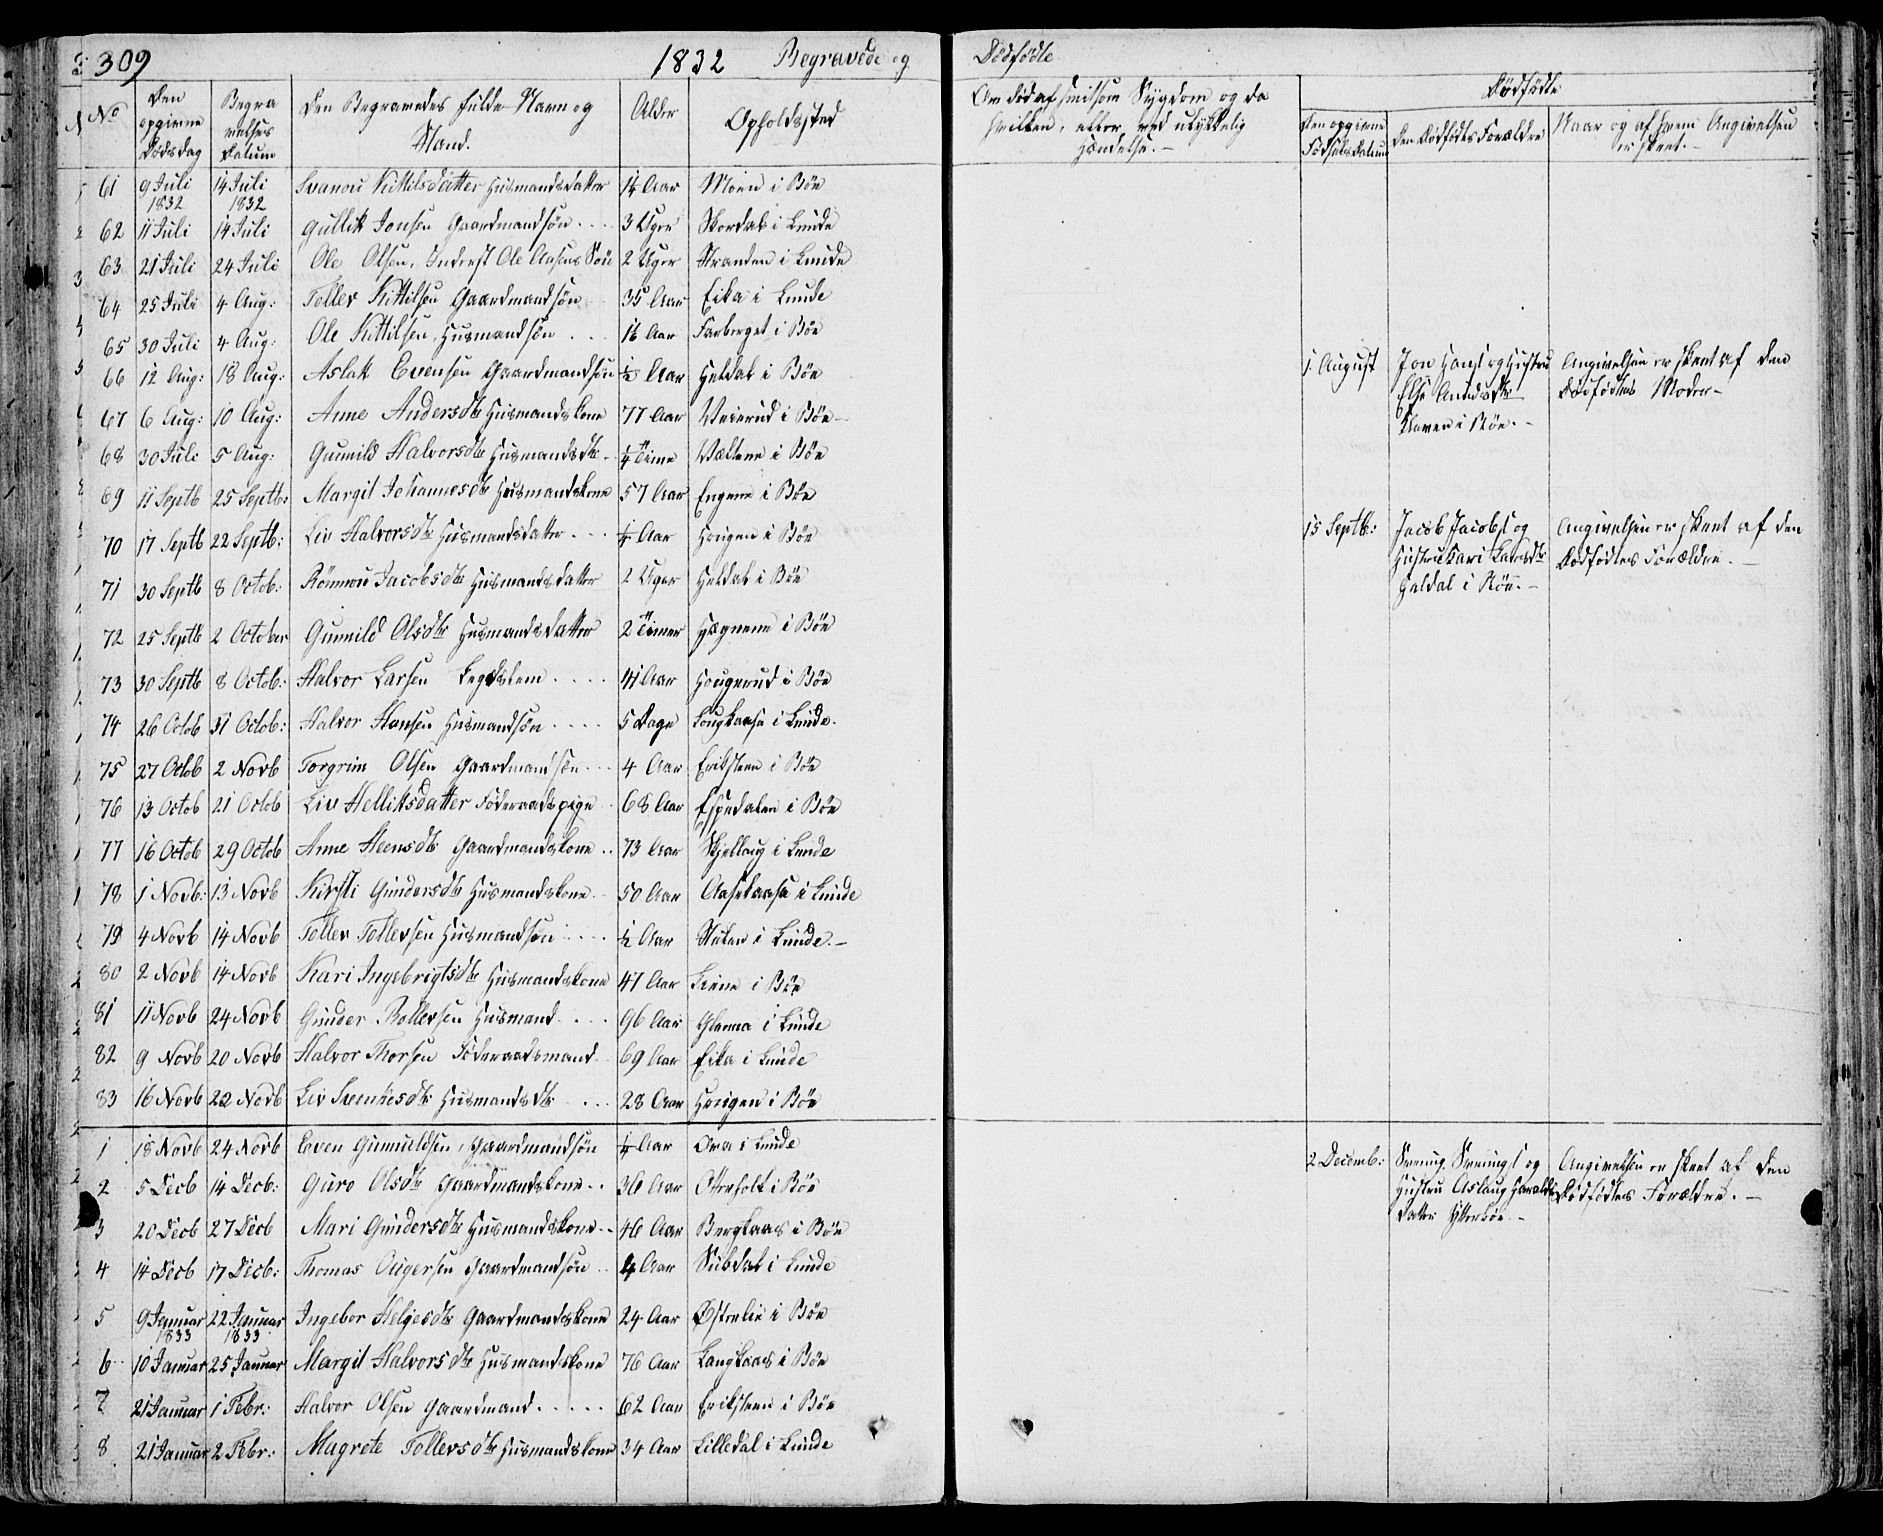 309 1832 Begravede og Dødfødte
No Den opgivne Dødsdag Begravelses Datum Den Begravedes fulde Navn og Stand. Alder Opholdssted Om død af smitsom Sygdom og da hvilken, eller ved ulykkelig Hændelse. — Dødfødte
Den opgivne Fødsels Datum Den Dødfødtes Forældre Naar og af hvem Angivelsen er skeet. —
61 9 Juli 1832 14 Juli 1832 Svanou Kittilsdatter Husmandsdatter 14 Aar Moen i Bøe
62 11 Juli 14 Juli Gullik Jonsen Gaardmandsøn 3 Uger Skordal i Lunde
63 21 Juli 24 Juli Ole Olsen, Inderst Ole Aasens Søn 2 Uger Stranden i Lunde
64 25 Juli 4 Aug: Tollev Kittilsen Gaardmandsøn 35 Aar Eika i Lunde
65 30 Juli 4 Aug: Ole Kittilsen, Husmandsøn 16 Aar Farberget i Bøe
66 12 Aug: 18 Aug: Aslak Evensen Gaardmandsøn ½ Aar Heldal i Bøe
1. August Jon Hans! og Hustru Else Amundsdtr Haven i Bøe. — Angivelsen er skeet af den Dødfødtes Moder —
67 6 Aug: 10 Aug: Anne Andersdtr Husmandskone 77 Aar Veierud i Bøe —
68 30 Juli 5 Aug: Gunnild Halvorsdtr Husmandsdtr. ¼ Time Vællene i Bøe
69 11 Septb 25 Septb: Margit Johannesdtr Husmandskone 57 Aar Engene i Bøe
70 17 Septb 22 Septb: Liv Halvorsdtr Husmandsdatter ¼ Aar Hougen i Bøe
15 Septb: Jacob Jacobs! og Hustru Kari Larsdtr Heldal i Bøe. — Angivelsen er skeet af den Dødfødtes Forældre. —
71 30 Septb 8 Octob: Rønnou Jacobsdtr Husmandsdatter 2 Uger Heldal i Bøe
72 25 Septb 2 October Gunnild Olsdtr Husmandsdatter 2 Timer Hegnene i Bøe
73 30 Septb 8 Octob: Halvor Larsen Legdslem 41 Aar Hougerud i Bøe
74 26 Octob 31 Octob: Halvor Hansen Husmandsøn 5 Dage Lougkaasa i Lunde.
75 27 Octob 2 Novb Torgrim Olsen Gaardmandsøn 4 Aar Eriksteen i Bøe
76 13 Octob 21 Octob Liv Helliksdatter Føderaadspige 68 Aar Espedalen i Bøe
77 16 Octob 29 Octob Anne Steensdtr Gaardmandskone 73 Aar Skjellaug i Lunde
78 1 Novb: 13 Novb Kirsti Gundersdtr Husmandskone 50 Aar Aasekaasa i Lunde
79 4 Novb 14 Novb Tollev Tollevsen Husmandsøn ½ Aar Stuten i Lunde. —
80 2 Novb 14 Novb Kari Ingebrigtsdtr Husmandskone 47 Aar Liene i Bøe
81 11 Novb 24 Novb Gunder Rollevsen Husmand 96 Aar Glenna i Lunde
82 9 Novb 20 Novb Halvor Thorsen Føderaadsmand 69 Aar Eika i Lunde
83 16 Novb 22 Novb Liv Svenkesdtr Husmandsdtr 28 Aar Hougen i Bøe
1 18 Novb 24 Novb Even Gunnuldsen, Gaardmandsøn ¼ Aar Ova i Lunde
2 Decemb: Svenung Svenungs! og Hustru Aslaug Haraldsdatter Ytterbøe. — Angivelsen er skeet af den Dødfødtes Forældre. —
2 5 Decb 14 Decb: Guro Olsdtr Gaardmandskone 36 Aar Otterholt i Bøe
3 20 Decb 27 Decb Mari Gundersdtr Husmandskone 46 Aar Bergkaas i Bøe
4 14 Decb 17 Decb: Thomas Ougersen Gaardmandsøn 4 Aar Suldal i Lunde
5 9 Januar 1833 22 Januar 1833 Ingebor Helgesdtr Gaardmandskone 24 Aar Østerlie i Bøe
6 10 Januar 25 Januar Margit Halvorsdtr Husmandskone 76 Aar Langkaas i Bøe
7 21 Januar 1 Febr: Halvor Olsen Gaardmand 62 Aar Eriksteen i Bøe
8 21 Januar 2 Febr: Magrete Tollevsdtr Husmandskone 34 Aar Lilledal i Lunde